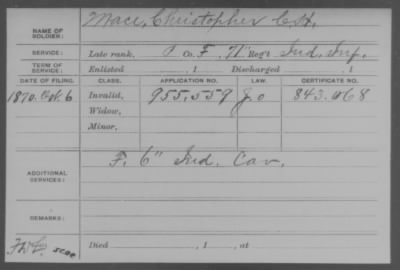 NAME OF SOLDIER: Mace, Christopher C. H.
SERVICE: Late rank, P Co. F, 71" Reg't Ind. Inf.
TERM OF SERVICE: Enlisted , 1 Discharged , 1
DATE OF FILING. CLASS. APPLICATION NO. LAW. CERTIFICATE NO.
1890. Oct. 6 Invalid, 955,559 843,068
Widow,
Minor,
ADDITIONAL SERVICES: F. 6" Ind. Cav.
REMARKS:
Died , 1 , at